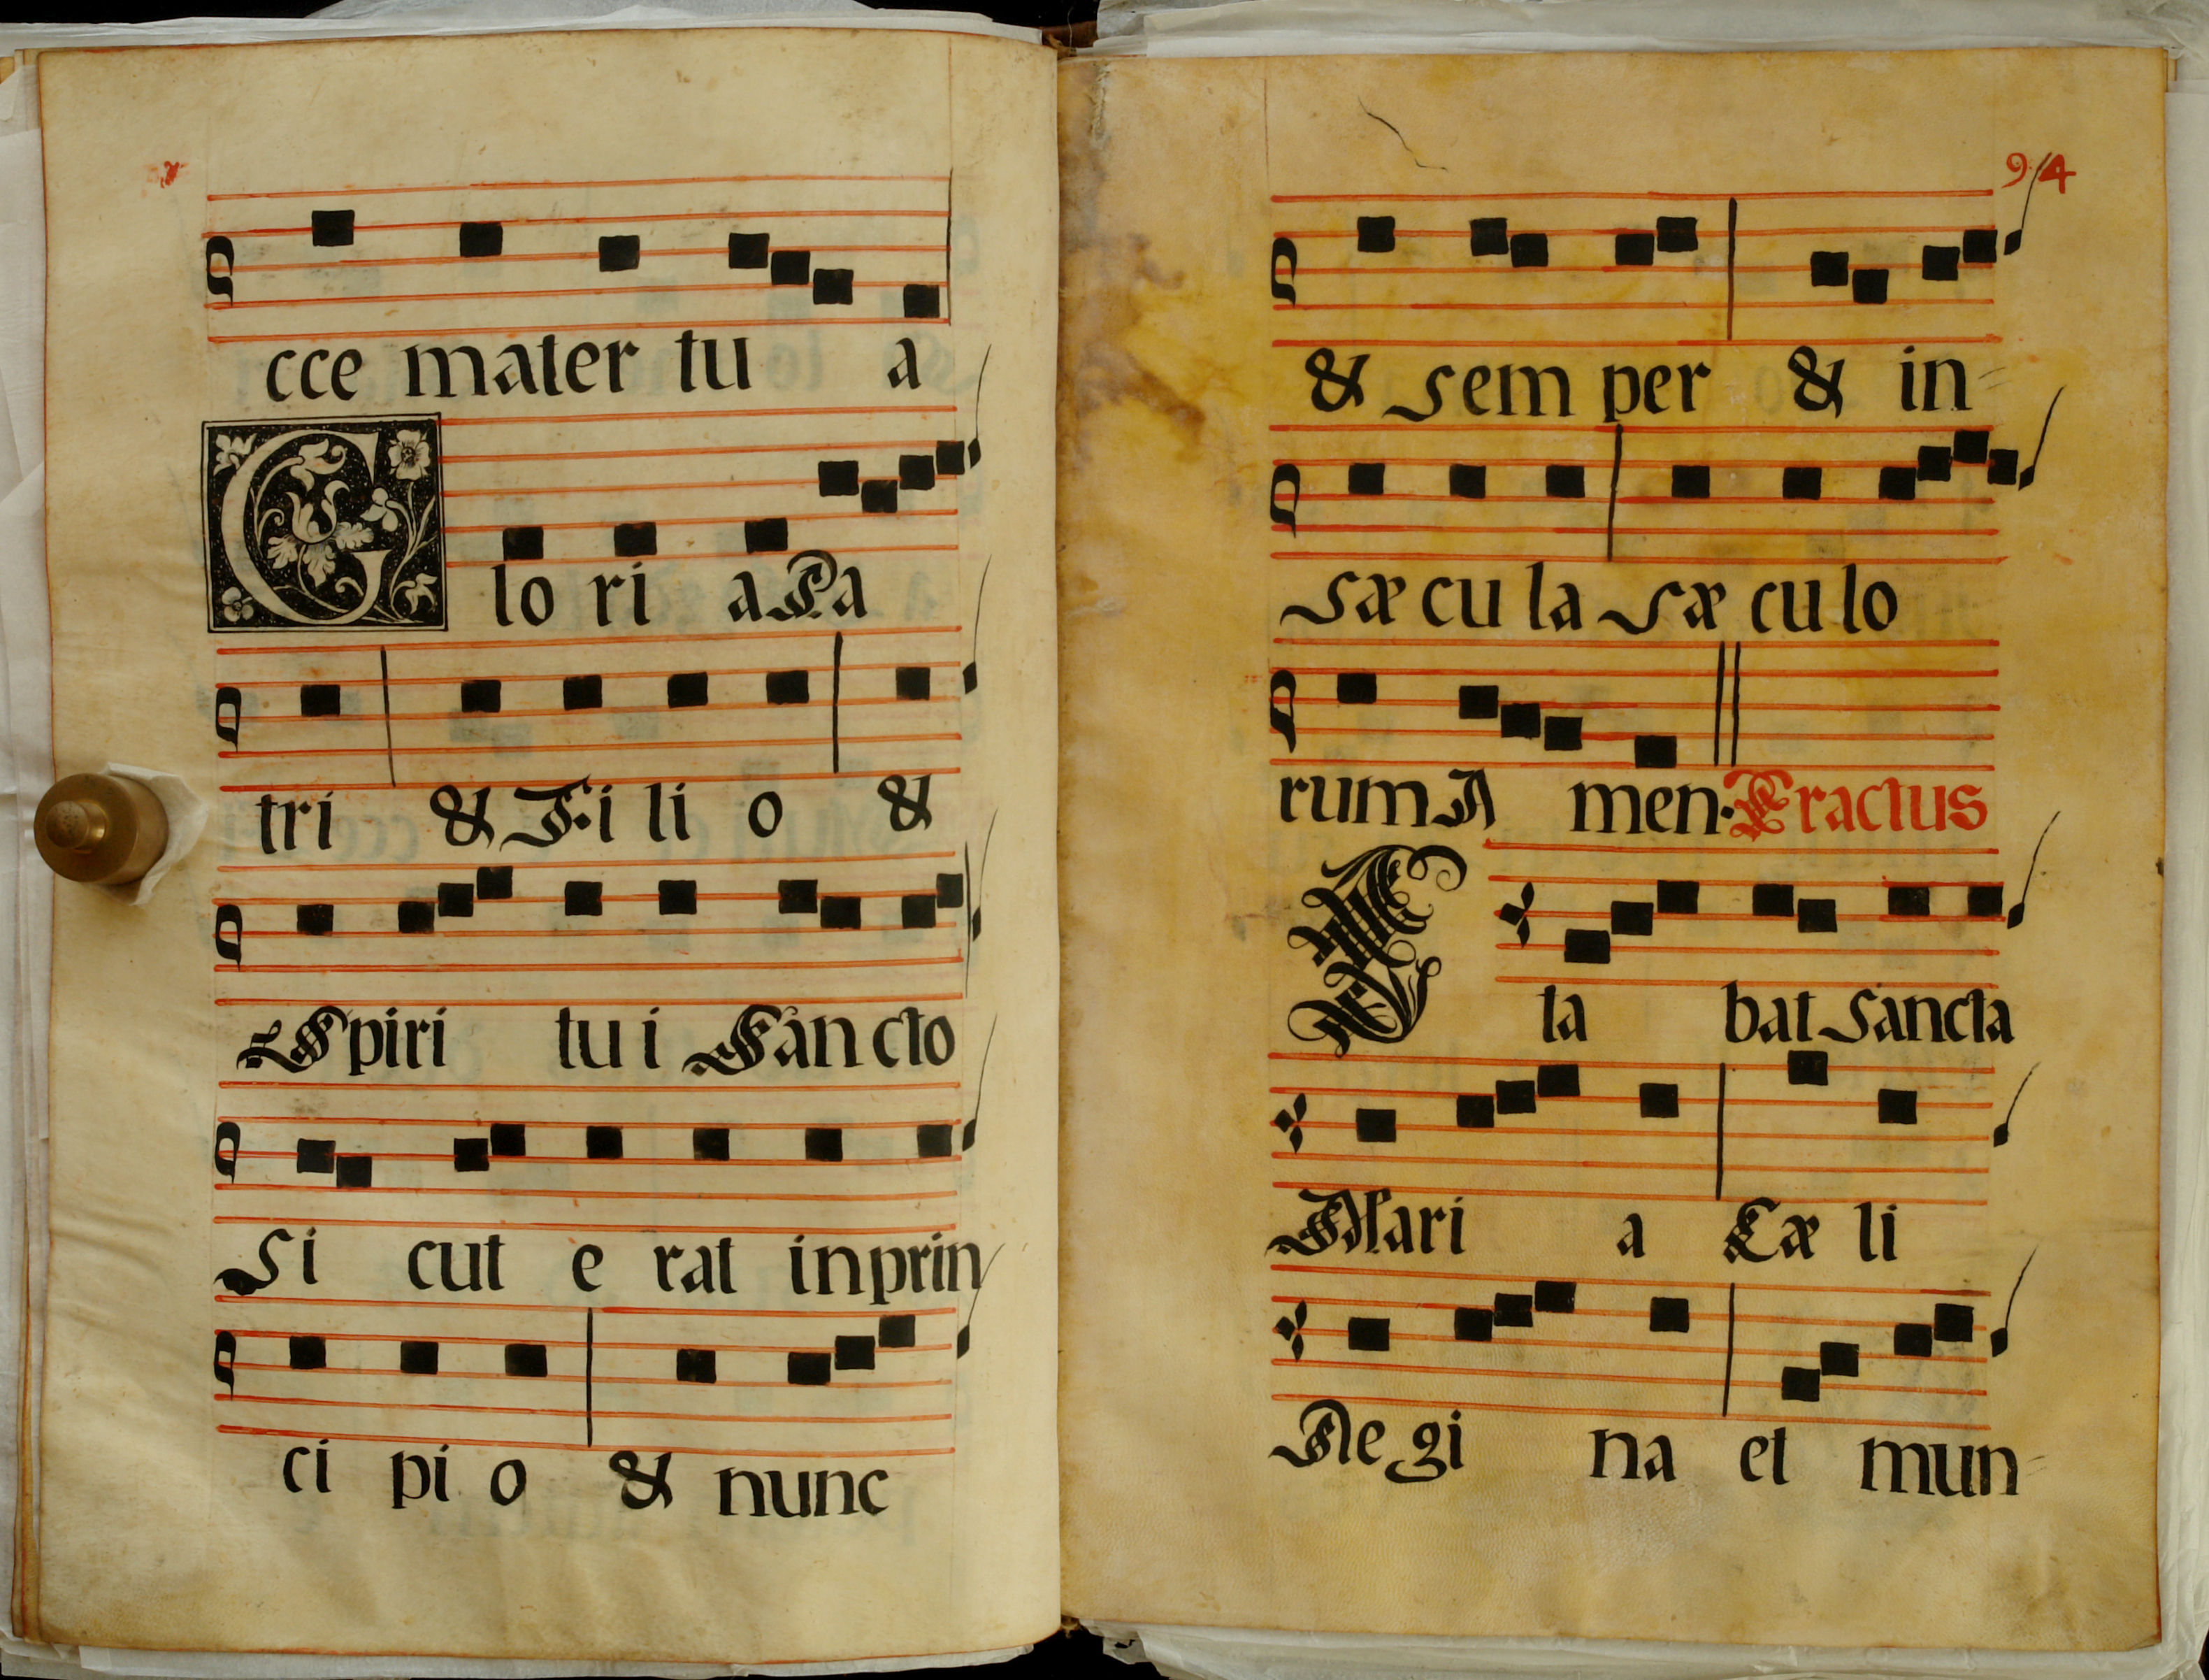 cce mater tu a
Glo ri a Pa
tri & Fi li o &
Spiri tu i San cto
Si cut e rat in prin
ci pi o & nunc
94
& sem per & in-
sæ cu la sæ cu lo
rum A men. Tractus
Sta bat sancta
Mari a Cæ li
Regi na et mun-